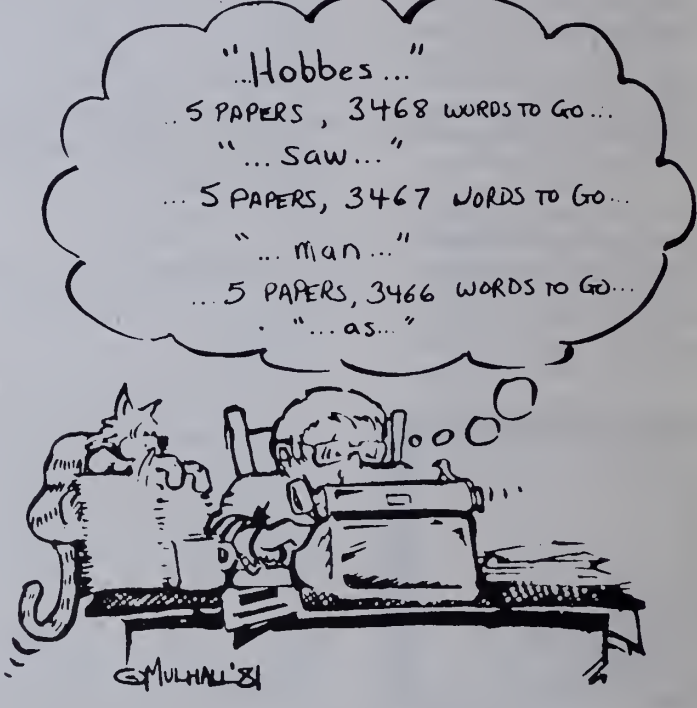 "...Hobbes..."
.. 5 PAPERS, 3468 WORDS TO GO...
"... Saw..."
... 5 PAPERS, 3467 WORDS TO GO...
"... man..."
... 5 PAPERS, 3466 WORDS TO GO...
"...as..."
G MULHALL '81